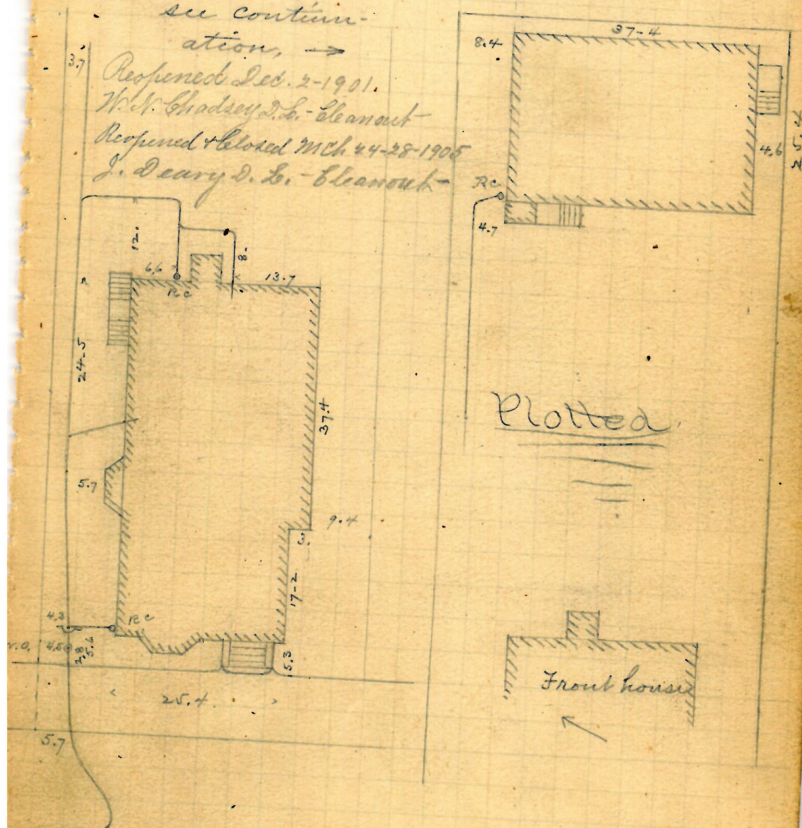 see continu-
ation, →
Reopened Dec. 2-1901.
W. N. Chadsey D. L. - Cleanout
Reopened & Closed Mch 24-28-1905
J. Deary D. L. - Cleanout
3.7
12.
6.6
Rc
8.
13.7
24-5
37.4
5.7
9.4
3.
17-2
4.3
Rc
7.8
5.6
5.3
25.4
5.7
37-4
8.4
4.6
25.4
Rc
4.7
Plotted
Front house